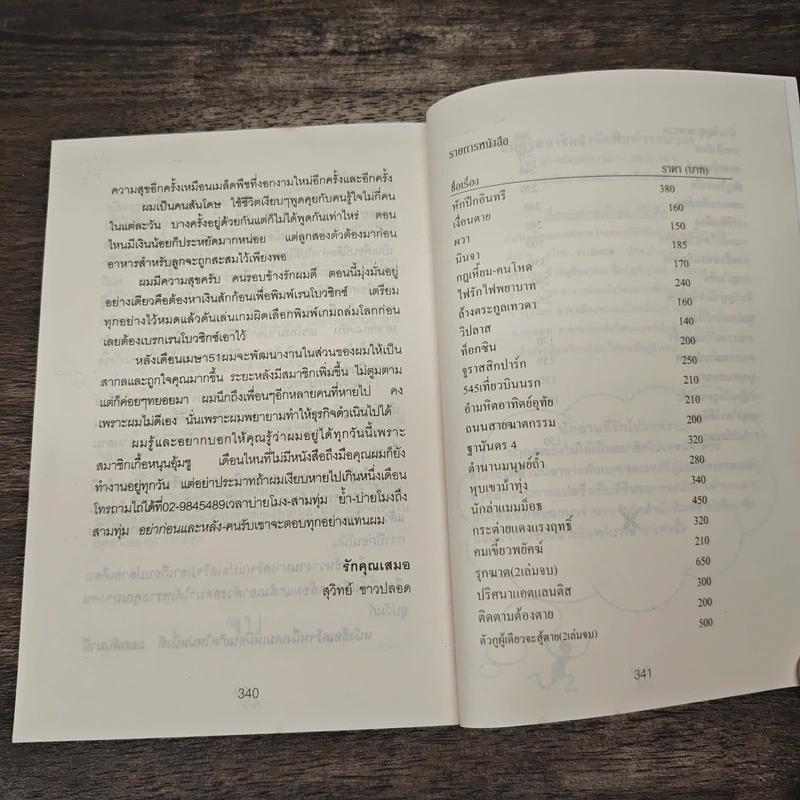 ความสุขอีกครั้งเหมือนเมล็ดพืชที่งอกงามใหม่อีกครั้งและอีกครั้ง
ผมเป็นคนสันโดษ ใช้ชีวิตเงียบๆพูดคุยกับคนรู้ใจไม่กี่คน
ในแต่ละวัน บางครั้งอยู่ด้วยกันแต่ก็ไม่ได้พูดกันเท่าไหร่ ตอน
ไหนมีเงินน้อยก็ประหยัดมากหน่อย แต่ลูกสองตัวต้องมาก่อน
อาหารสำหรับลูกจะถูกสะสมไว้เพียงพอ
ผมมีความสุขครับ คนรอบข้างรักผมดี ตอนนี้มุ่งมั่นอยู่
อย่างเดียวคือต้องหาเงินสักก้อนเพื่อพิมพ์เรนโบวซิกซ์ เตรียม
ทุกอย่างไว้หมดแล้วดันเล่นเกมผิดเลือกพิมพ์เกมถล่มโลกก่อน
เลยต้องเบรกเรนโบวซิกซ์เอาไว้
หลังเดือนเมษา51ผมจะพัฒนางานในส่วนของผมให้เป็น
สากลและถูกใจคุณมากขึ้น ระยะหลังมีสมาชิกเพิ่มขึ้น ไม่ตูมตาม
แต่ก็ค่อยๆทยอยมา ผมนึกถึงเพื่อนๆอีกหลายคนที่หายไป คง
เพราะผมไม่ดีเอง นั่นเพราะผมพยายามทำให้ธุรกิจดำเนินไปได้
ผมรู้และอยากบอกให้คุณรู้ว่าผมอยู่ได้ทุกวันนี้เพราะ
สมาชิกเกื้อหนุนอุ้มชู เดือนไหนที่ไม่มีหนังสือถึงมือคุณผมก็ยัง
ทำงานอยู่ทุกวัน แต่อย่าประมาทถ้าผมเงียบหายไปเกินหนึ่งเดือน
โทรถามไถ่ได้ที่02-9845489เวลาบ่ายโมง-สามทุ่ม ย้ำ-บ่ายโมงถึง
สามทุ่ม อย่าก่อนและหลัง-คนรับเขาจะตอบทุกอย่างแทนผม
รักคุณเสมอ
สุวิทย์ ขาวปลอด
340
รายการหนังสือ
ชื่อเรื่อง ราคา (บาท)
หักปีกอินทรี 380
เงื่อนตาย 160
ผวา 150
นินจา 185
กฎเหี้ยม-คนโหด 170
ไฟรักไฟพยาบาท 240
ล้างตระกูลเทวดา 160
วิปลาส 140
ท็อกซิน 200
จูราสสิกปาร์ก 250
545เที่ยวบินนรก 210
อำมหิตอาทิตย์อุทัย 210
ถนนสายฆาตกรรม 200
ฐานันดร 4 320
ตำนานมนุษย์ถ้ำ 280
หุบเขาม้าทุ่ง 340
นักล่าแมมม็อธ 450
กระต่ายแดงแรงฤทธิ์ 320
คมเขี้ยวพยัคฆ์ 210
รุกฆาต(2เล่มจบ) 650
ปริศนาแอตแลนติส 300
ติดตามต้องตาย 200
ตัวกูผู้เดียวจะสู้ตาย(2เล่มจบ) 500
341